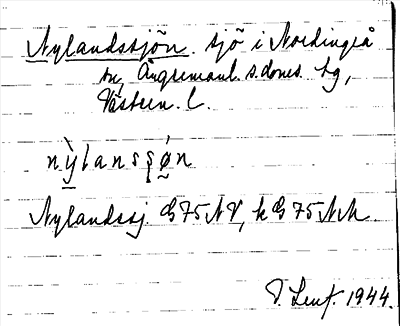 Nylandssjön. sjö i Nordingrå
sn, Ångermanl. s. doms. tg,
Västern. l.
nỳlansʂǿn
Nylandssj. G75NV, kG75NN.
1944.